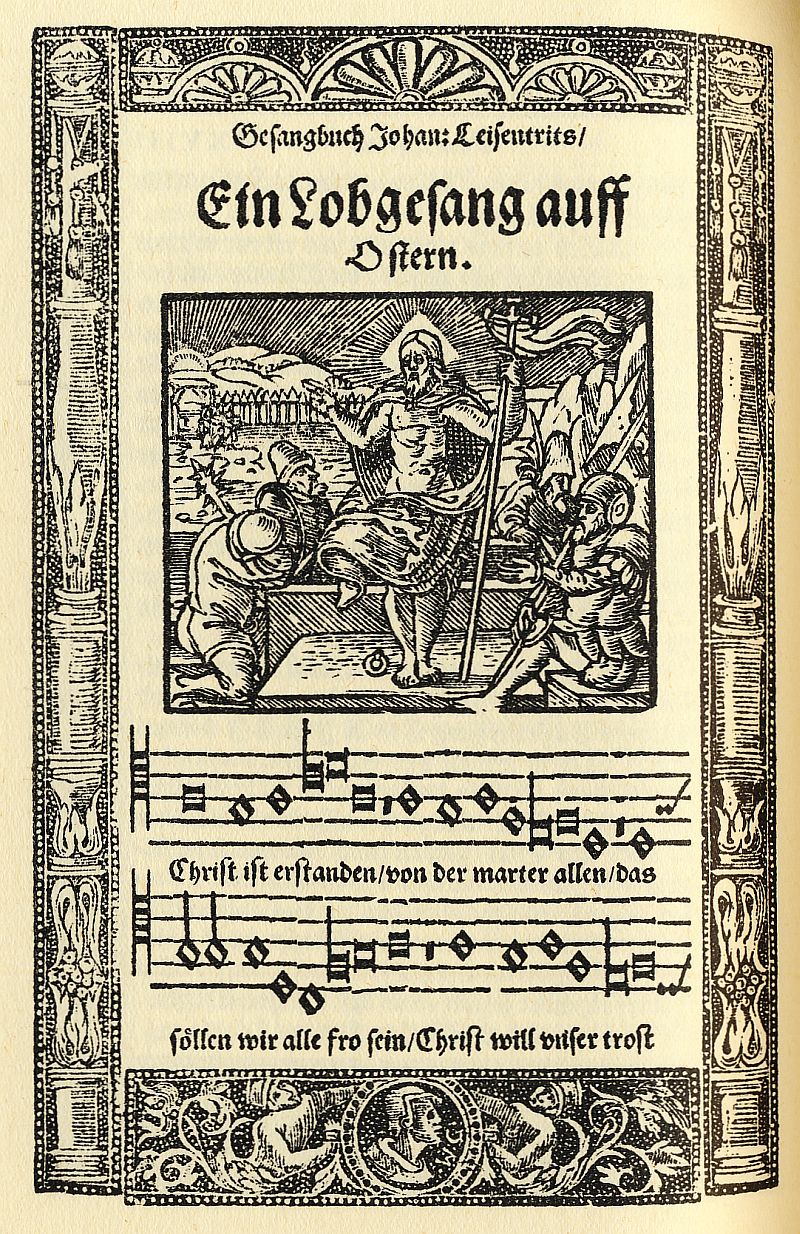 Gesangbuch Johan: Leisentrits/
Ein Lobgesang auff
Ostern.
Christ ist erstanden/von der marter allen/das
söllen wir alle fro sein/Christ will vnser trost